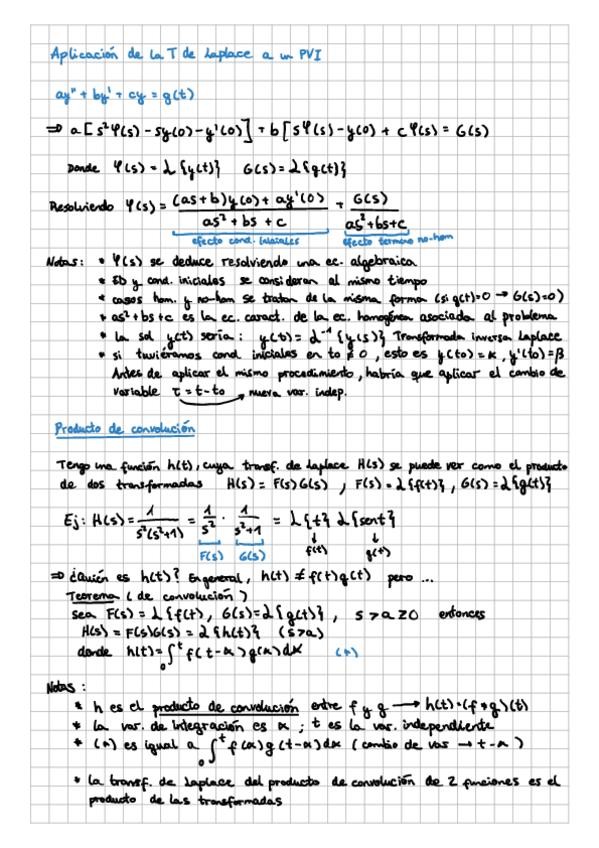 Aplicación de la T de Laplace a un PVI
ay'' + by' + cy = g(t)
⇒ a[s²Ψ(s) - sy(0) - y'(0)] + b[sΨ(s) - y(0) + cΨ(s) = G(s)
Donde Ψ(s) = L{y(t)} G(s) = L{g(t)}
Resolviendo Ψ(s) = ((as+b)y(0) + ay'(0))/(as² + bs + c) + G(s)/(as²+bs+c)
efecto cond. iniciales efecto termino no-hom
Notas: * Ψ(s) se deduce resolviendo una ec. algebraica
* ED y cond. iniciales se consideran al mismo tiempo
* casos hom. y no-hom se tratan de la misma forma (si g(t)=0 → G(s)=0)
* as² + bs + c es la ec. caract. de la ec. homogénea asociada al problema
* la sol y(t) sería: y(t) = L⁻¹{y(s)} Transformada inversa Laplace
* si tuviéramos cond. iniciales en to ≠ 0, esto es y(to) = α, y'(to) = β
Antes de aplicar el mismo procedimiento, habría que aplicar el cambio de
variable τ = t - to → nueva var. indep.
Producto de convolución
Tengo una función h(t), cuya transf. de Laplace H(s) se puede ver como el producto
de dos transformadas H(s) = F(s)G(s), F(s) = L{f(t)}, G(s) = L{g(t)}
Ej: H(s) = 1/(s²(s²+1)) = 1/s² · 1/(s²+1) = L{t} L{sent}
F(s) G(s) ↓ f(t) ↓ g(t)
⇒ ¿Quién es h(t)? En general, h(t) ≠ f(t)g(t) pero ...
Teorema (de convolución)
sea F(s) = L{f(t), G(s) = L{g(t)}, s > a ≥ 0 entonces
H(s) = F(s)G(s) = L{h(t)} (s>a)
donde h(t) = ∫₀ᵗ f(t-α)g(α)dα (*)
Notas:
* h es el producto de convolución entre f y g → h(t) = (f * g)(t)
* la var. de integración es α ; t es la var. independiente
* (*) es igual a ∫₀ᵗ f(α)g(t-α)dα (cambio de var → t-α)
* la transf. de Laplace del producto de convolución de 2 funciones es el
producto de las transformadas